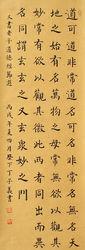 道可道非常道名可名非常名無名天
地之始有名萬物之母常無欲以觀其
妙常有欲以觀其徼此兩者同出而異
名同謂之玄玄之又玄衆妙之門
書老子道德經
丙戌年夏四月歷下丁子義書